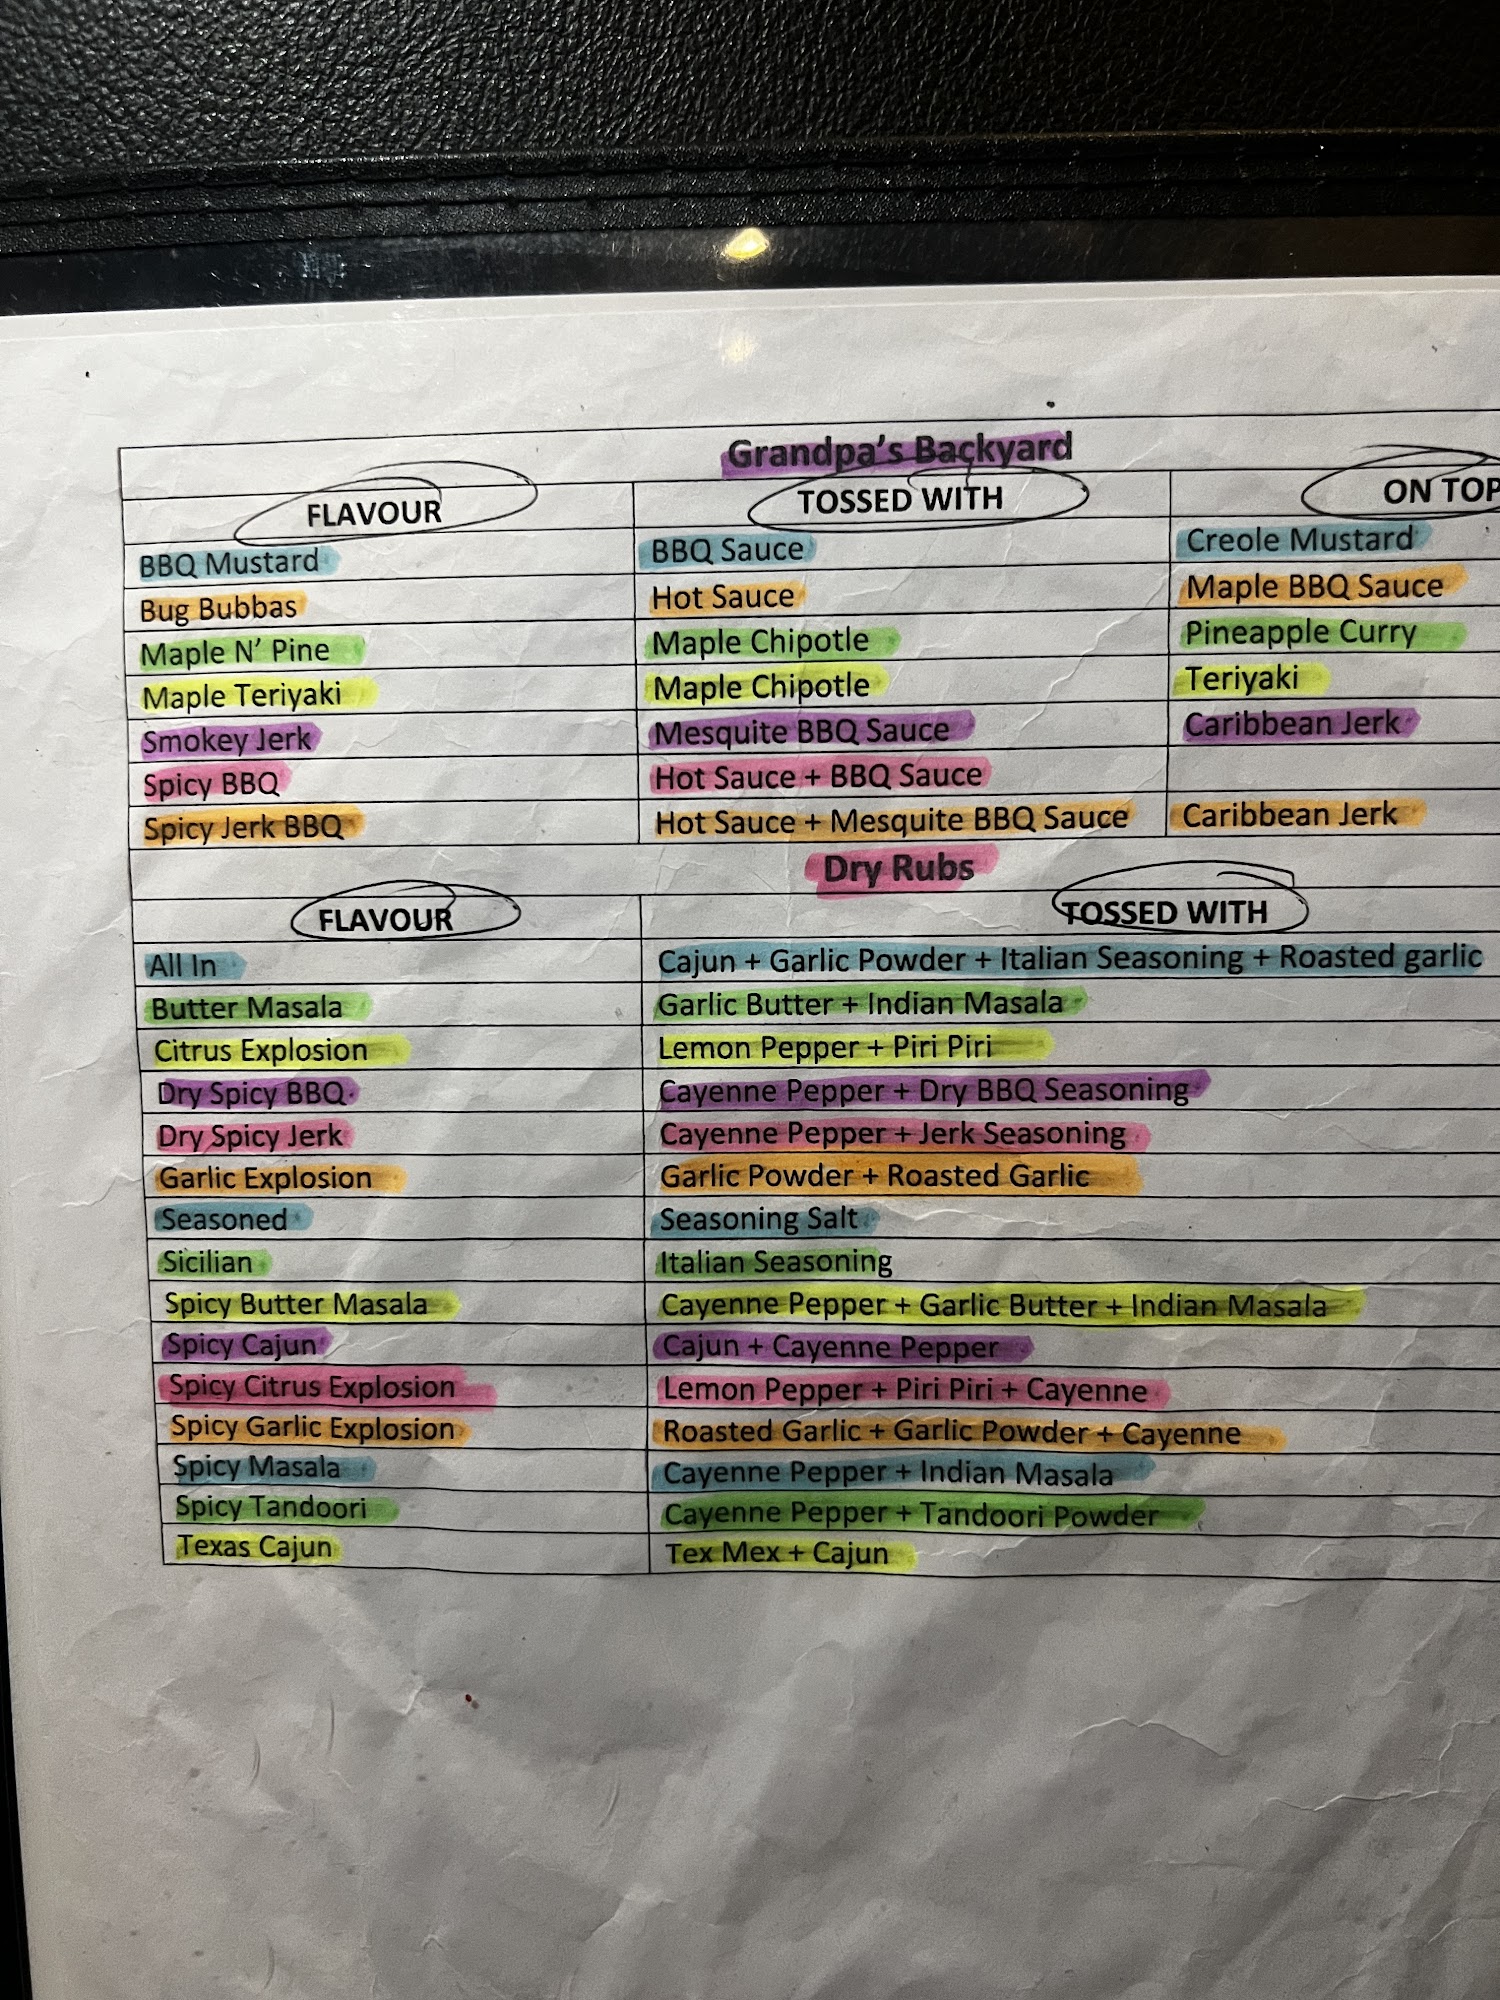 Grandpa's Backyard
FLAVOUR TOSSED WITH ON TOP
BBQ Mustard BBQ Sauce Creole Mustard
Bug Bubbas Hot Sauce Maple BBQ Sauce
Maple N' Pine Maple Chipotle Pineapple Curry
Maple Teriyaki Maple Chipotle Teriyaki
Smokey Jerk Mesquite BBQ Sauce Caribbean Jerk
Spicy BBQ Hot Sauce + BBQ Sauce
Spicy Jerk BBQ Hot Sauce + Mesquite BBQ Sauce Caribbean Jerk
Dry Rubs
FLAVOUR TOSSED WITH
All In Cajun + Garlic Powder + Italian Seasoning + Roasted garlic
Butter Masala Garlic Butter + Indian Masala
Citrus Explosion Lemon Pepper + Piri Piri
Dry Spicy BBQ Cayenne Pepper + Dry BBQ Seasoning
Dry Spicy Jerk Cayenne Pepper + Jerk Seasoning
Garlic Explosion Garlic Powder + Roasted Garlic
Seasoned Seasoning Salt
Sicilian Italian Seasoning
Spicy Butter Masala Cayenne Pepper + Garlic Butter + Indian Masala
Spicy Cajun Cajun + Cayenne Pepper
Spicy Citrus Explosion Lemon Pepper + Piri Piri + Cayenne
Spicy Garlic Explosion Roasted Garlic + Garlic Powder + Cayenne
Spicy Masala Cayenne Pepper + Indian Masala
Spicy Tandoori Cayenne Pepper + Tandoori Powder
Texas Cajun Tex Mex + Cajun